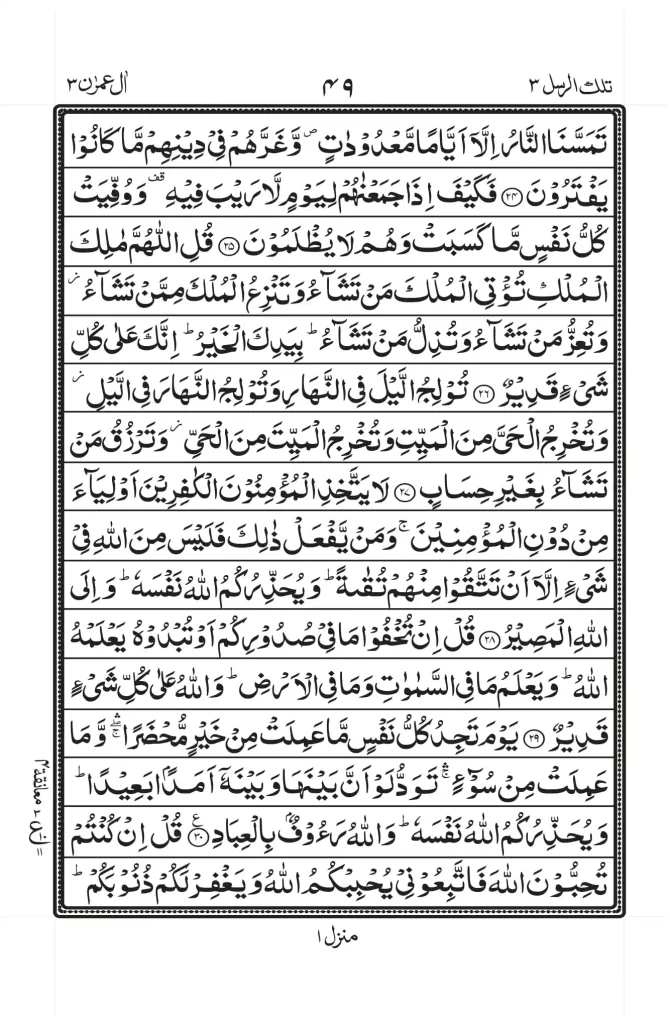 تلك الرسل ٣ ۴۹ اٰل عمرٰن ٣
تَمَسَّنَا النَّارُ اِلَّاۤ اَيَّامًا مَّعْدُوْدٰتٍ ۪ وَّغَرَّهُمْ فِيْ دِيْنِهِمْ مَّا كَانُوْا
يَفْتَرُوْنَ ﴿۲۴﴾ فَكَيْفَ اِذَا جَمَعْنٰهُمْ لِيَوْمٍ لَّا رَيْبَ فِيْهِ قف وَوُفِّيَتْ
كُلُّ نَفْسٍ مَّا كَسَبَتْ وَهُمْ لَا يُظْلَمُوْنَ ﴿۲۵﴾ قُلِ اللّٰهُمَّ مٰلِكَ
الْمُلْكِ تُؤْتِي الْمُلْكَ مَنْ تَشَآءُ وَتَنْزِعُ الْمُلْكَ مِمَّنْ تَشَآءُ ز
وَتُعِزُّ مَنْ تَشَآءُ وَتُذِلُّ مَنْ تَشَآءُ ؕ بِيَدِكَ الْخَيْرُ ؕ اِنَّكَ عَلٰى كُلِّ
شَيْءٍ قَدِيْرٌ ﴿۲۶﴾ تُوْلِجُ الَّيْلَ فِي النَّهَارِ وَتُوْلِجُ النَّهَارَ فِي الَّيْلِ ز
وَتُخْرِجُ الْحَيَّ مِنَ الْمَيِّتِ وَتُخْرِجُ الْمَيِّتَ مِنَ الْحَيِّ ز وَتَرْزُقُ مَنْ
تَشَآءُ بِغَيْرِ حِسَابٍ ﴿۲۷﴾ لَا يَتَّخِذِ الْمُؤْمِنُوْنَ الْكٰفِرِيْنَ اَوْلِيَآءَ
مِنْ دُوْنِ الْمُؤْمِنِيْنَ ۚ وَمَنْ يَّفْعَلْ ذٰلِكَ فَلَيْسَ مِنَ اللّٰهِ فِيْ
شَيْءٍ اِلَّاۤ اَنْ تَتَّقُوْا مِنْهُمْ تُقٰىةً ؕ وَيُحَذِّرُكُمُ اللّٰهُ نَفْسَهٗ ؕ وَاِلَى
اللّٰهِ الْمَصِيْرُ ﴿۲۸﴾ قُلْ اِنْ تُخْفُوْا مَا فِيْ صُدُوْرِكُمْ اَوْ تُبْدُوْهُ يَعْلَمْهُ
اللّٰهُ ؕ وَيَعْلَمُ مَا فِي السَّمٰوٰتِ وَمَا فِي الْاَرْضِ ؕ وَاللّٰهُ عَلٰى كُلِّ شَيْءٍ
قَدِيْرٌ ﴿۲۹﴾ يَوْمَ تَجِدُ كُلُّ نَفْسٍ مَّا عَمِلَتْ مِنْ خَيْرٍ مُّحْضَرًا ۛۚ وَّمَا
عَمِلَتْ مِنْ سُوْٓءٍ ۛۚ تَوَدُّ لَوْ اَنَّ بَيْنَهَا وَبَيْنَهٗۤ اَمَدًاۢ بَعِيْدًا ؕ
وَيُحَذِّرُكُمُ اللّٰهُ نَفْسَهٗ ؕ وَاللّٰهُ رَءُوْفٌۢ بِالْعِبَادِ ﴿۳۰﴾ ع قُلْ اِنْ كُنْتُمْ
تُحِبُّوْنَ اللّٰهَ فَاتَّبِعُوْنِيْ يُحْبِبْكُمُ اللّٰهُ وَيَغْفِرْ لَكُمْ ذُنُوْبَكُمْ ؕ
منزل ١